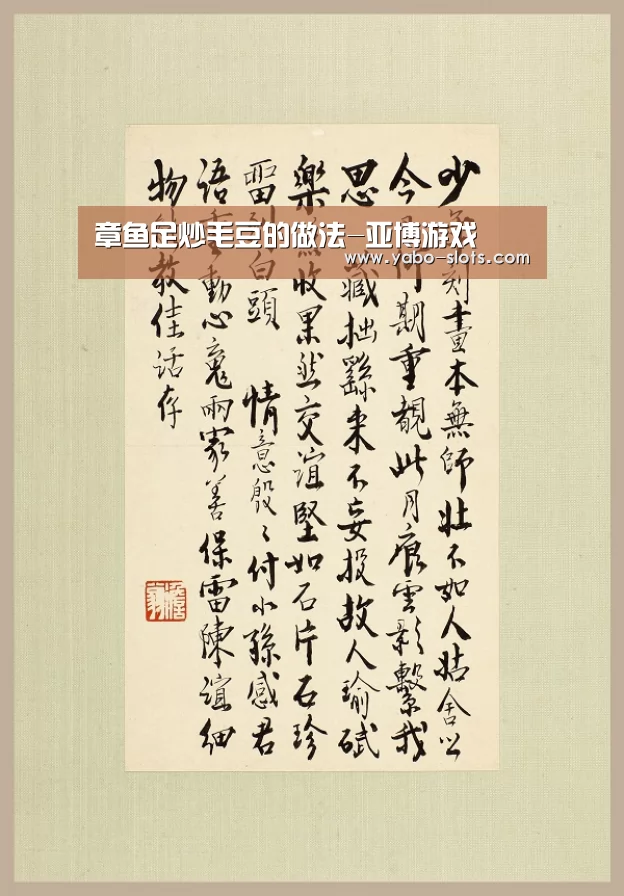 章鱼足炒毛豆的做法–亚博游戏
www.yabo-slots.com
刻畫本無師壯不如人姑舍
今期重覯此月痕雲影繫我
思藏拙繇来不妄投故人瑜碔
樂收果然交誼堅如石片石珍
留白頭 情意殷〻付小孫感君
語重動心魂兩家善保雷陳誼細
物教佳話存